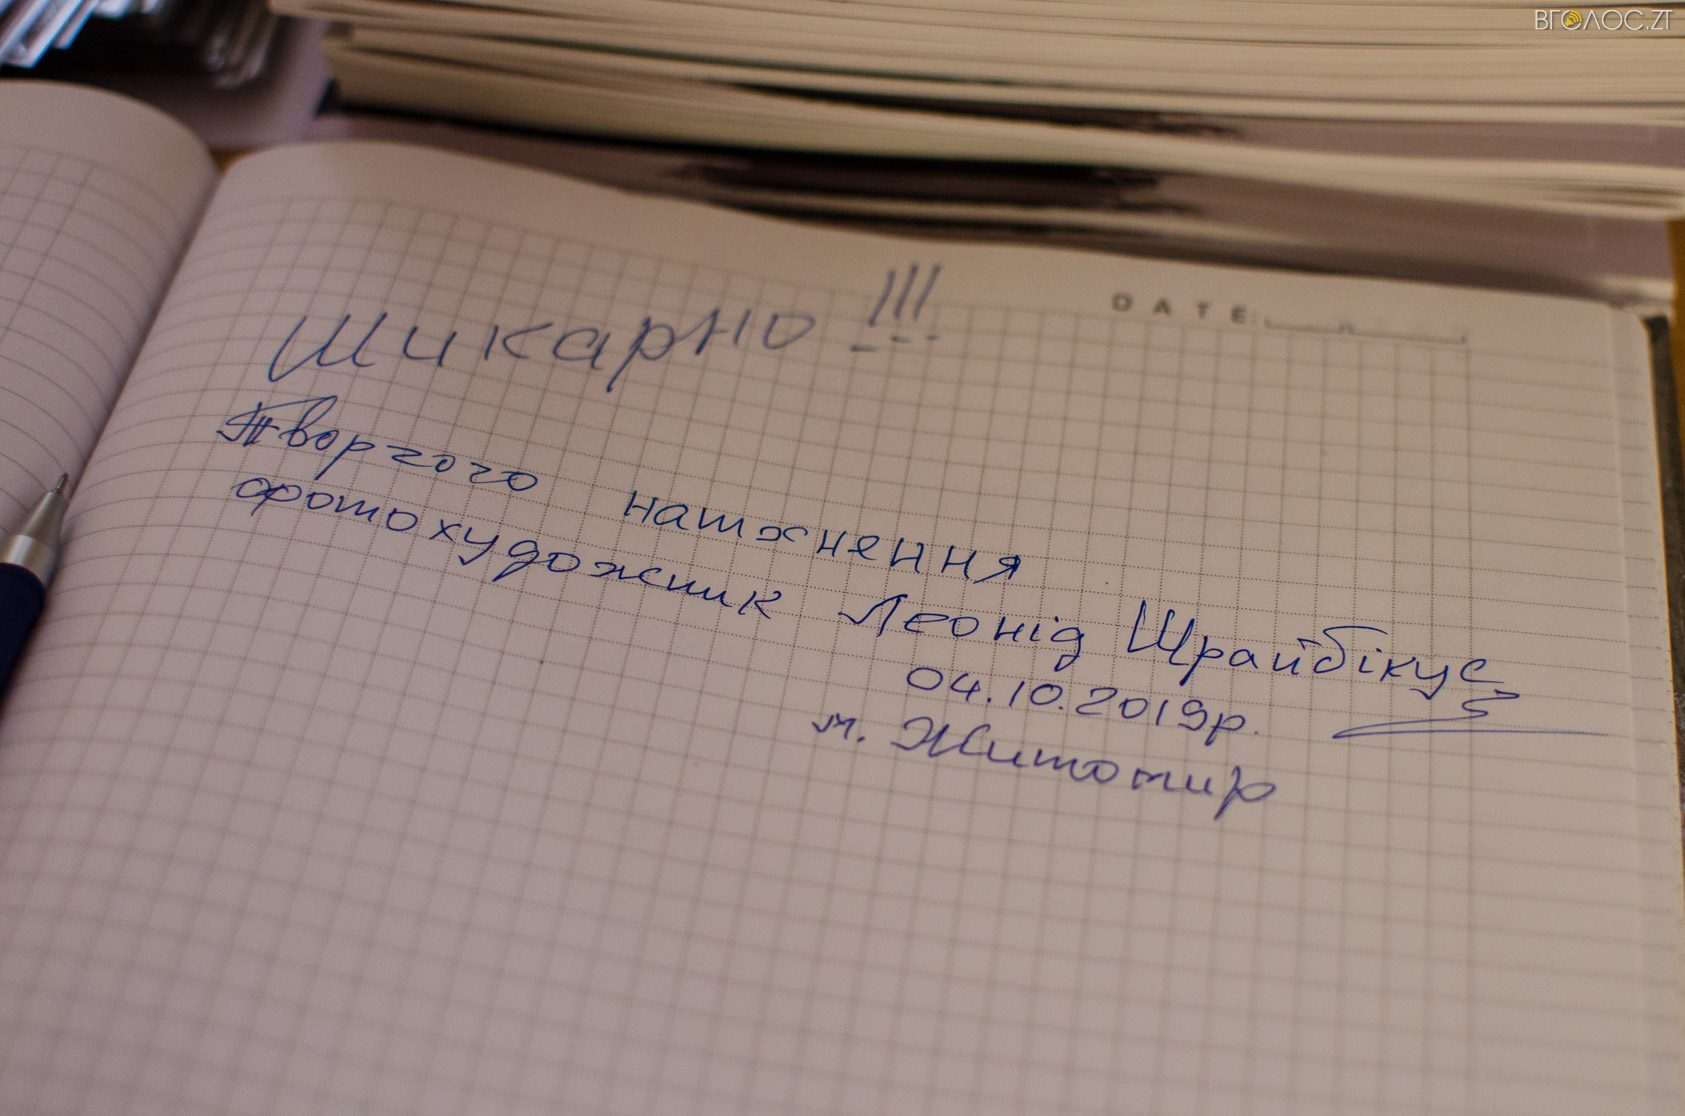 ВГОЛОС.ZT
DATE:
Шикарно!!!
Творчого натхнення
фотохудожник Леонід Шрайбікус
04.10.2019р.
м. Житомир